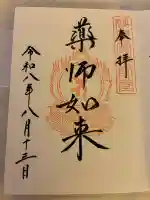 奉拝
薬師如来
令和八年八月十三日